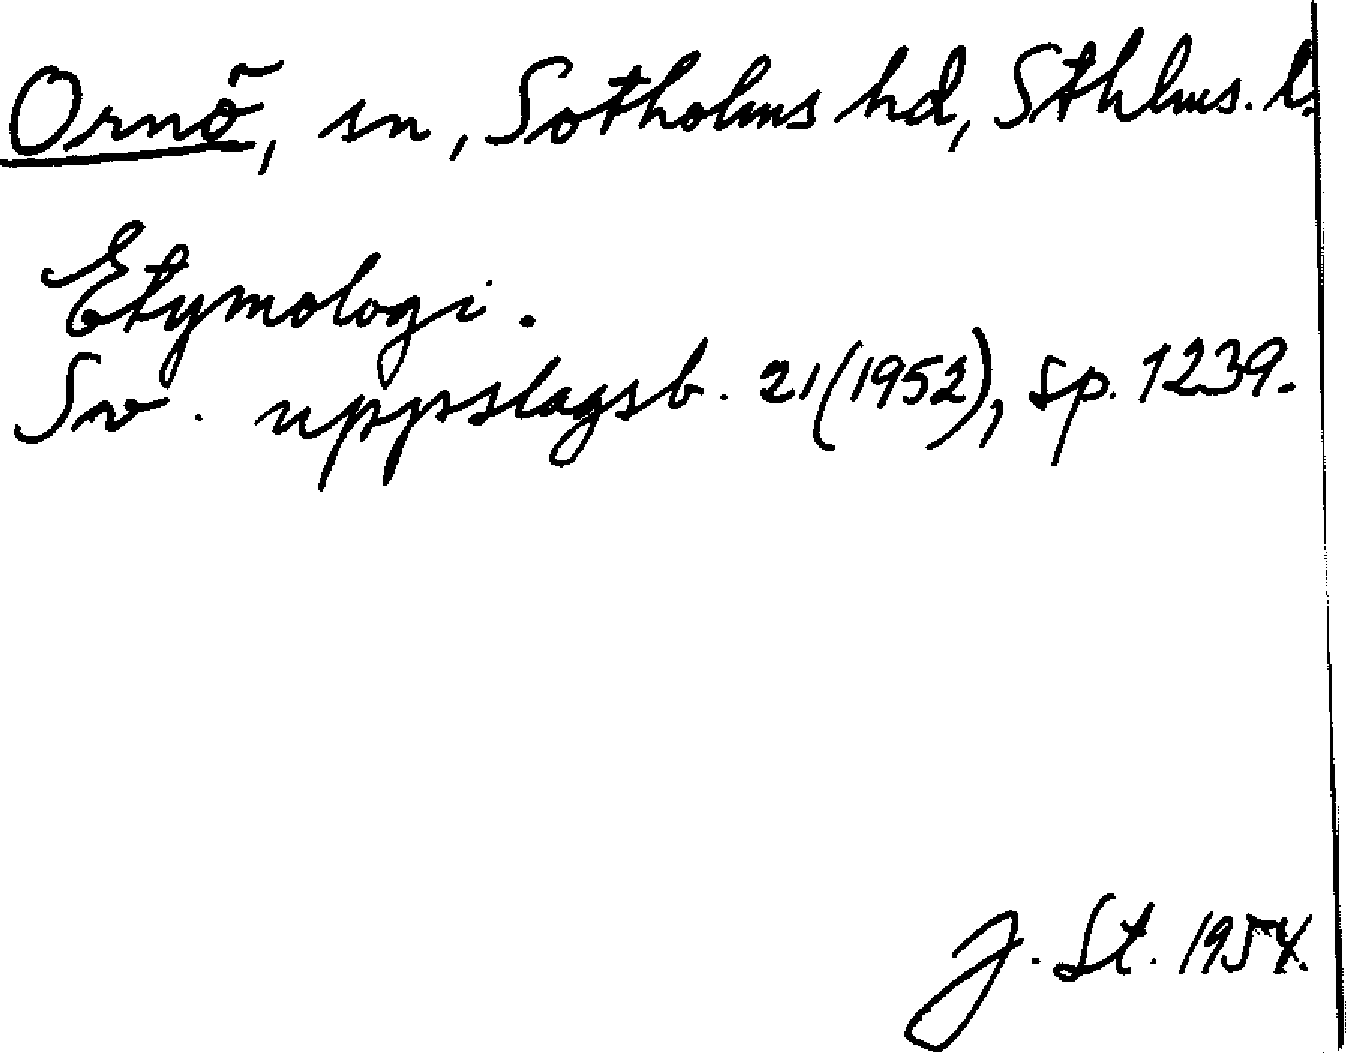 Ornö, sn, Sotholms hd, Sthlms. l.
Etymologi.
Sv. uppslagsb. 21(1952), sp. 1239.
J. St. 1954.